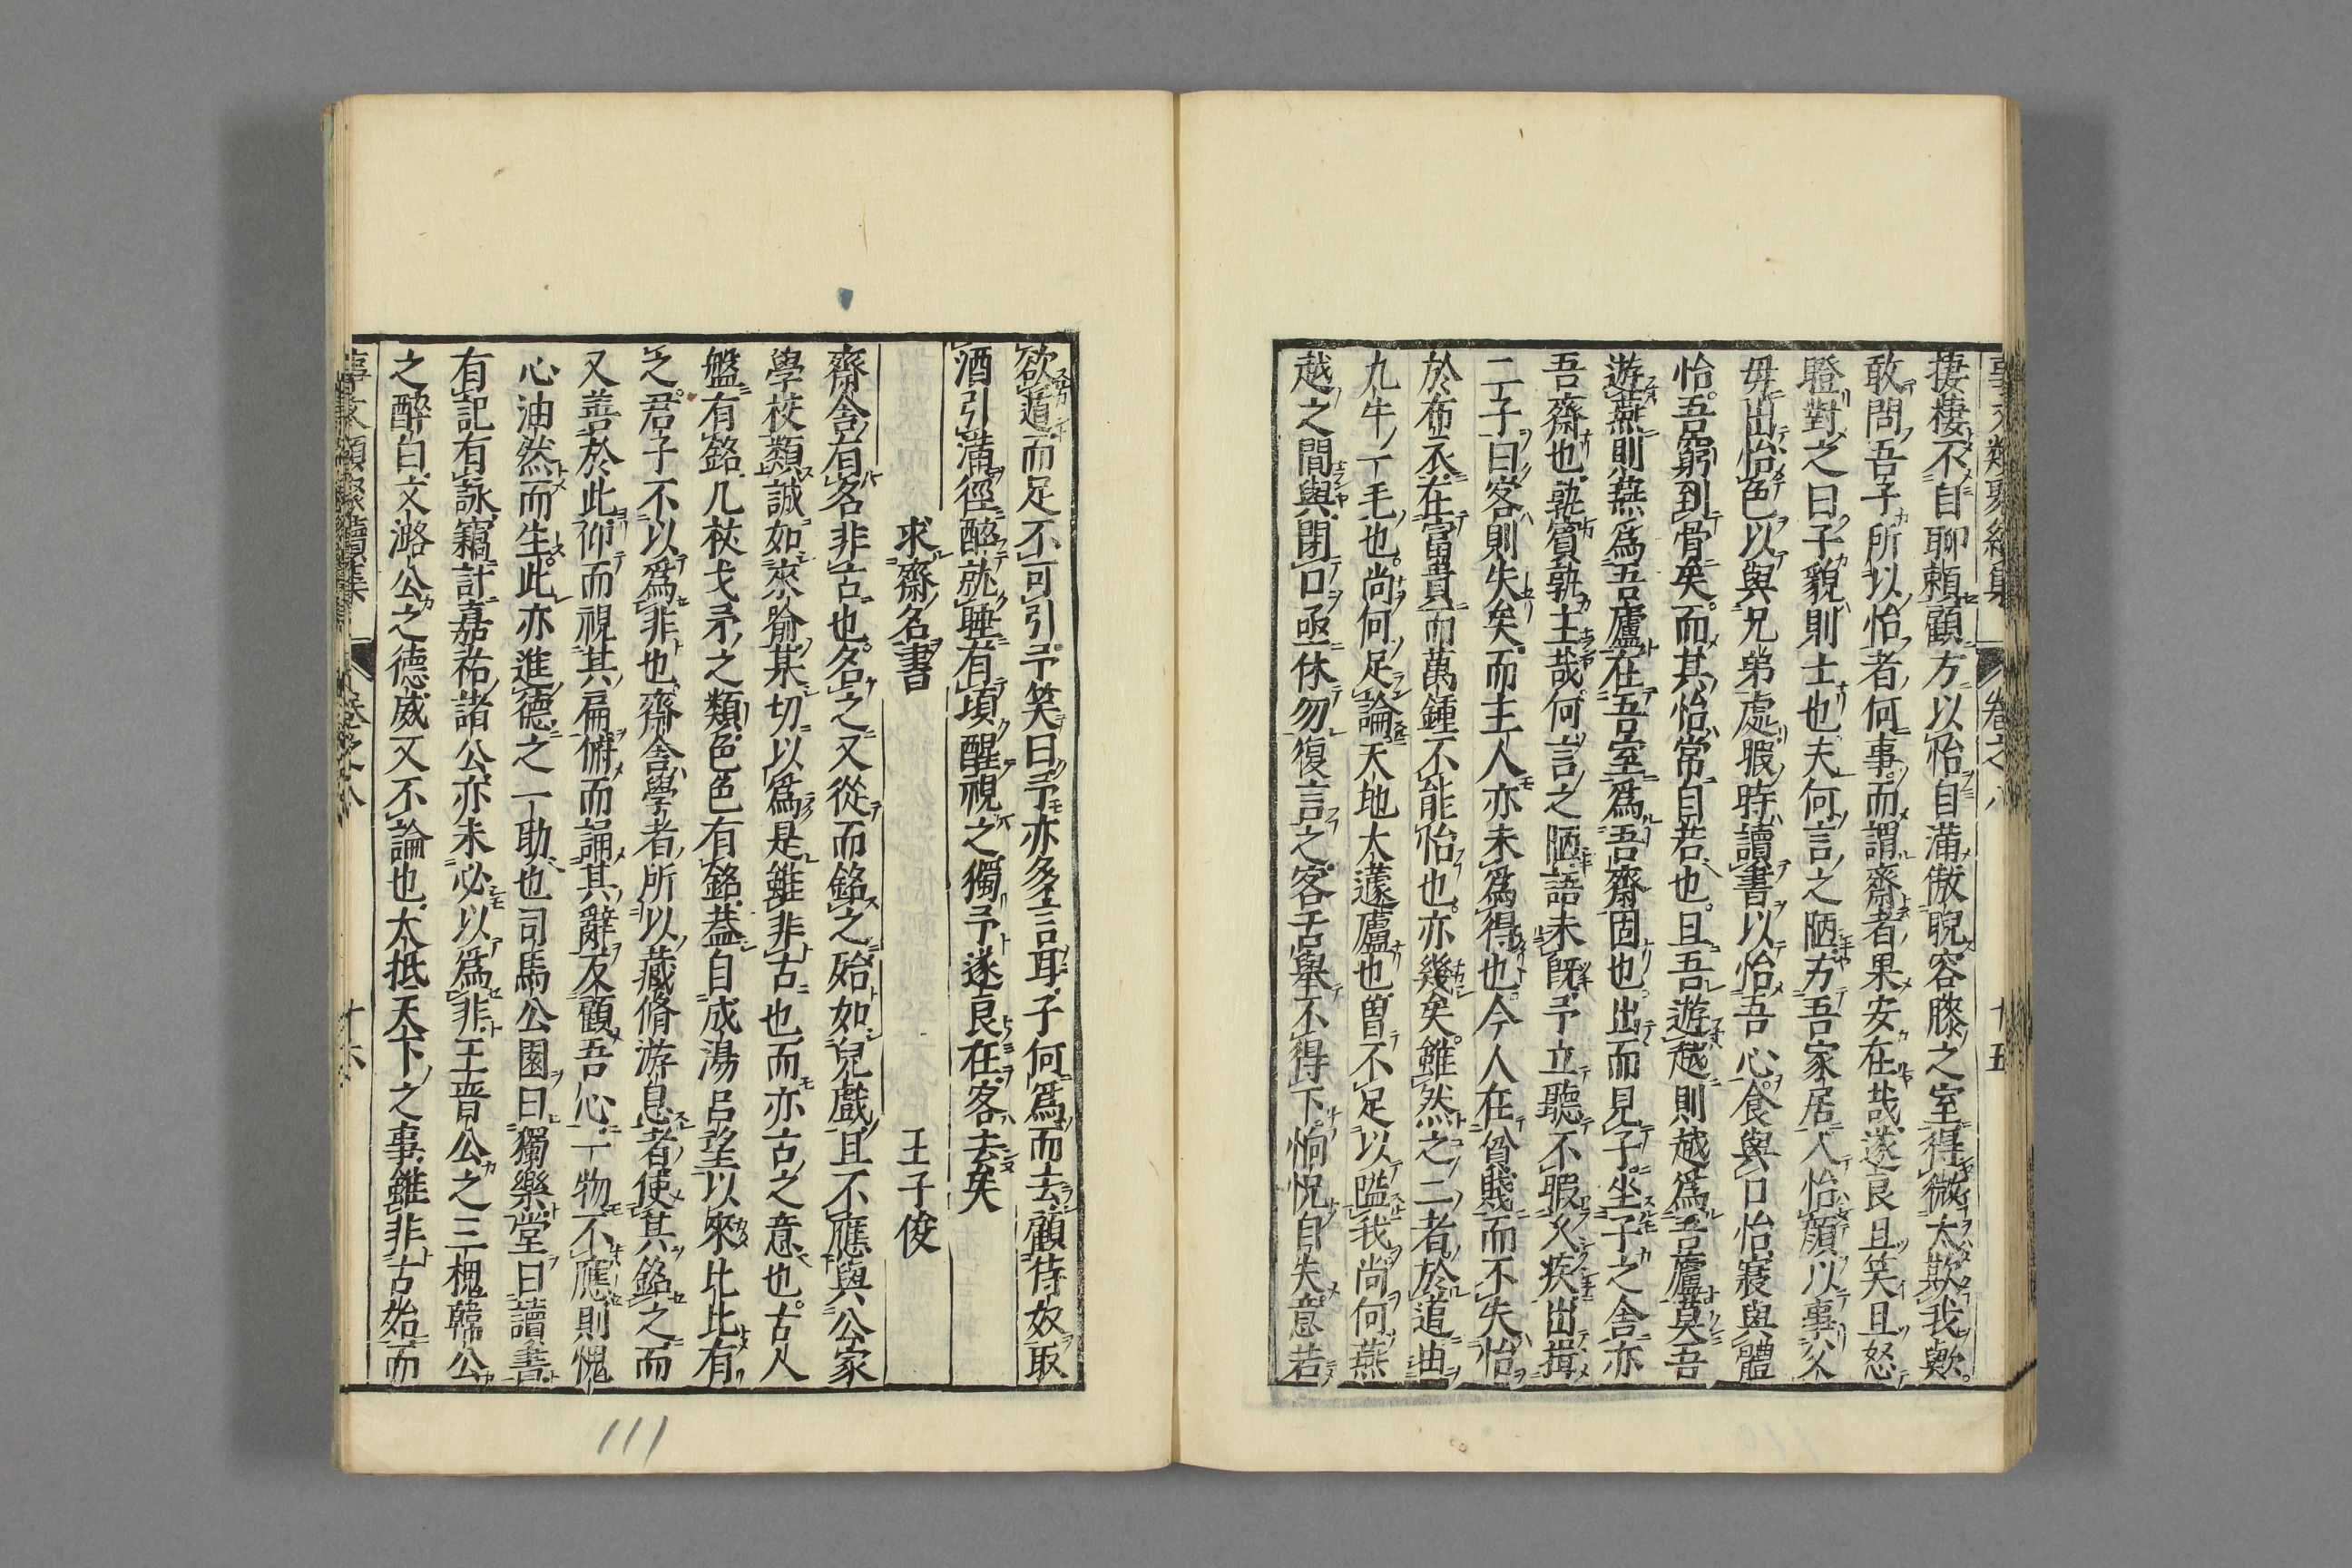 事文類聚續集 卷之八 十五
捿棲不自聊頼顧方以怡自滿傲睨容膝之室得微太欺我歟
敢問吾子所以怡者何事而謂齋者果安在哉遂良且笑且怒
瞪對之曰子貌則士也夫何言之陋方吾家居入怡顔以事父
毋出怡色以與兄弟處暇時讀書以怡吾心食與口怡寢與體
怡吾窮到骨矣而其怡常自若也且吾遊越則越爲吾廬莫吾
遊燕則燕爲吾廬在吾室爲吾齋固也出而見子坐子之舎亦
吾齋也孰賓孰主哉何言之陋語未旣予立聽不暇又疾出揖
二子曰客則失矣而主人亦未爲得也今人在貧賤而不失怡
於布衣在富貴而萬鍾不能怡也亦幾矣雖然之二者於道由
九牛一毛也尚何足論天地大蘧廬也曽不足以隘我尚何燕
越之間與閉口亟休勿復言之客舌舉不得下恟怳自失意若
欲遁而足不可引予笑曰予亦多言耳子何爲而去顧侍奴取
酒引滿徑醉就睡有頃醒視之獨予遂良在客去矣
求齋名書 王子俊
齋舎有名非古也名之又從而銘之殆如兒戲且不應與公家
學校類誠如來喻某切以爲是雖非古也而亦古之意也古人
盤有銘几杖戈矛之類色色有銘葢自成湯呂望以來比比有
之君子不以爲非也齋舎學者所以藏脩游息者使其銘之而
又善於此仰而視其扁俯而誦其辭反顧吾心一物不應則愧
心油然而生此亦進德之一助也司馬公園曰獨樂堂曰讀書
有記有詠竊計嘉祐諸公亦未必以爲非王晋公之三槐韓公
之醉白文潞公之德威又不論也大抵天下之事雖非古始而
事文類聚續集 卷之八 十六